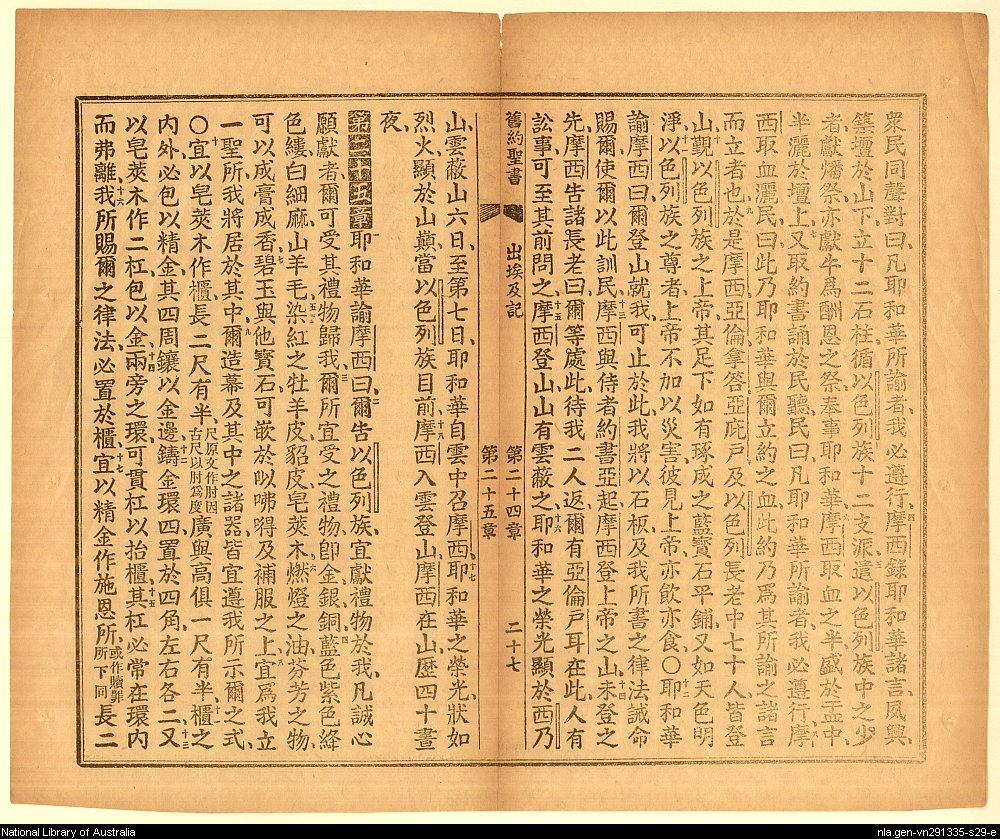 衆民同聲對曰凡耶和華所諭者我必遵行四摩西錄耶和華諸言夙興
築壇於山下立十二石柱循以色列族十二支派五遣以色列族中之少
者獻燔祭亦獻牛爲酬恩之祭奉事耶和華六摩西取血之半盛於盂中
半灑於壇上七又取約書誦於民聽民曰凡耶和華所諭者我必遵行八摩
西取血灑民曰此乃耶和華與爾立約之血此約乃爲其所諭之諸言
而立者也九於是摩西亞倫拿答亞庇戶及以色列長老中七十人皆登
山十覲以色列族之上帝其足下如有琢成之藍寶石平鋪又如天色明
淨十一以色列族之尊者上帝不加以災害彼見上帝亦飲亦食〇十二耶和華
諭摩西曰爾登山就我可止於此我將以石板及我所書之律法誡命
賜爾使爾以此訓民十三摩西與侍者約書亞起摩西登上帝之山十四未登之
先摩西告諸長老曰爾等處此待我二人返爾有亞倫戶耳在此人有
訟事可至其前問之十五摩西登山山有雲蔽之十六耶和華之榮光顯於西乃
舊約聖書 出埃及記 第二十四章 第二十五章 二十七
山雲蔽山六日至第七日耶和華自雲中召摩西十七耶和華之榮光狀如
烈火顯於山巓當以色列族目前十八摩西入雲登山摩西在山歷四十晝
夜
第二十五章一耶和華諭摩西曰二爾告以色列族宜獻禮物於我凡誠心
願獻者爾可受其禮物歸我三爾所宜受之禮物卽金銀銅四藍色紫色絳
色縷白細麻山羊毛五染紅之牡羊皮貂皮皂莢木六燃燈之油芬芳之物
可以成膏成香七碧玉與他寶石可嵌於以咈嘚及補服之上八宜爲我立
一聖所我將居於其中九爾造幕及其中之諸器皆宜遵我所示爾之式
〇十宜以皂莢木作櫃長二尺有半尺原文作肘因古尺以肘爲度廣與高俱一尺有半十一櫃之
內外必包以精金其四周鑲以金邊十二鑄金環四置於四角左右各二十三又
以皂莢木作二杠包以金十四兩旁之環可貫杠以抬櫃十五其杠必常在環內
而弗離十六我所賜爾之律法必置於櫃十七宜以精金作施恩所或作贖罪所下同長二
National Library of Australia
nla.gen-vn291335-s29-e